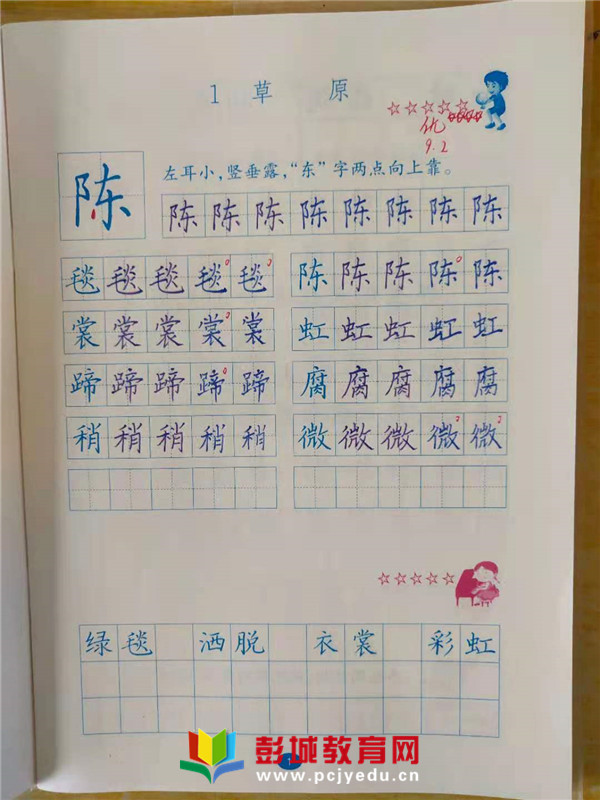 1 草 原
优
9.2
陈
左耳小，竖垂露，“东”字两点向上靠。
陈 陈 陈 陈 陈 陈 陈 陈
毯 毯 毯 毯 毯 陈 陈 陈 陈 陈
裳 裳 裳 裳 裳 虹 虹 虹 虹 虹
蹄 蹄 蹄 蹄 蹄 腐 腐 腐 腐 腐
稍 稍 稍 稍 稍 微 微 微 微 微
绿 毯 洒 脱 衣 裳 彩 虹
彭城教育网
www.pcjyedu.cn